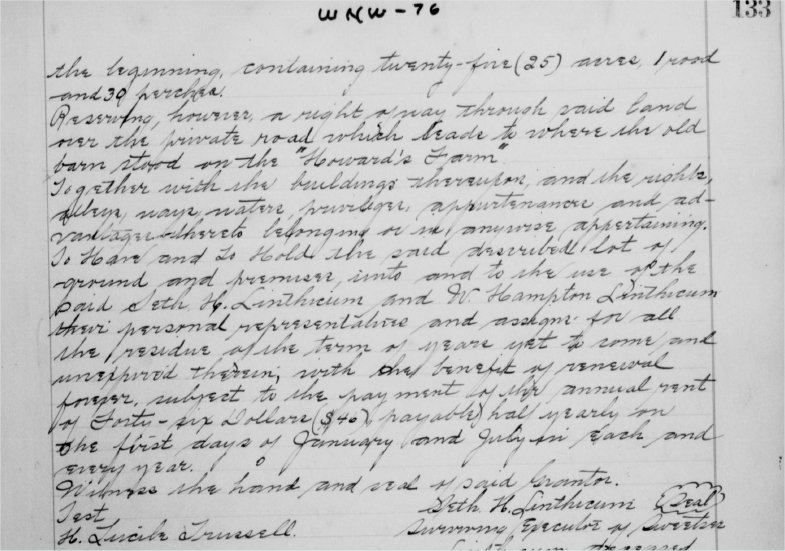 WNW-76
133
the beginning, containing twenty-five (25) acres, 1 rood
and 30 perches.
Reserving, however, a right of way through said land
over the private road which leads to where the old
barn stood on the "Howard's Farm"
Together with the buildings thereupon, and the rights,
alleys, ways, waters, privileges, appurtenances and ad-
vantages thereto belonging or in anywise appertaining.
To Have and To Hold the said described lot of
ground and premises, unto and to the use of the
said Seth. H. Linthicum and W. Hampton Linthicum
their personal representatives and assigns for all
the residue of the term of years yet to come and
unexpired therein, with the benefit of renewal
forever, subject to the payment of the annual rent
of Forty-six Dollars ($46), payable half yearly on
the first days of January and July in each and
every year.
Witness the hand and seal of said Grantor.
Test Seth. H. Linthicum (Seal)
H. Lucile Trussell. Surviving Executor of Sweetser
Linthicum deceased